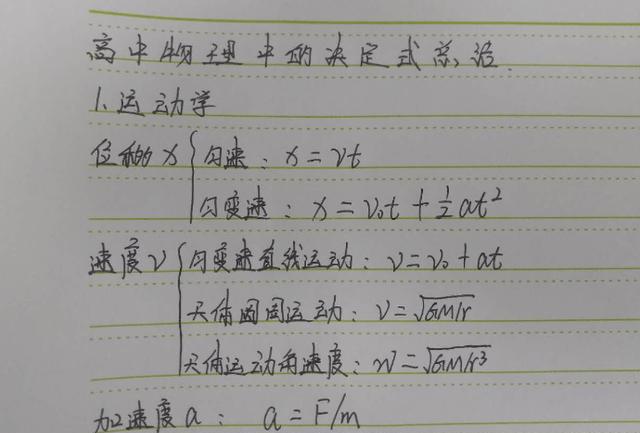 高中物理中的决定式总结.
1.运动学
位移 x { 匀速: x=vt
匀变速: x=v₀t+½at²
速度 v { 匀变速直线运动: v=v₀+at
天体圆周运动: v=√GM/r
天体运动角速度: w=√GM/r³
加速度 a: a=F/m